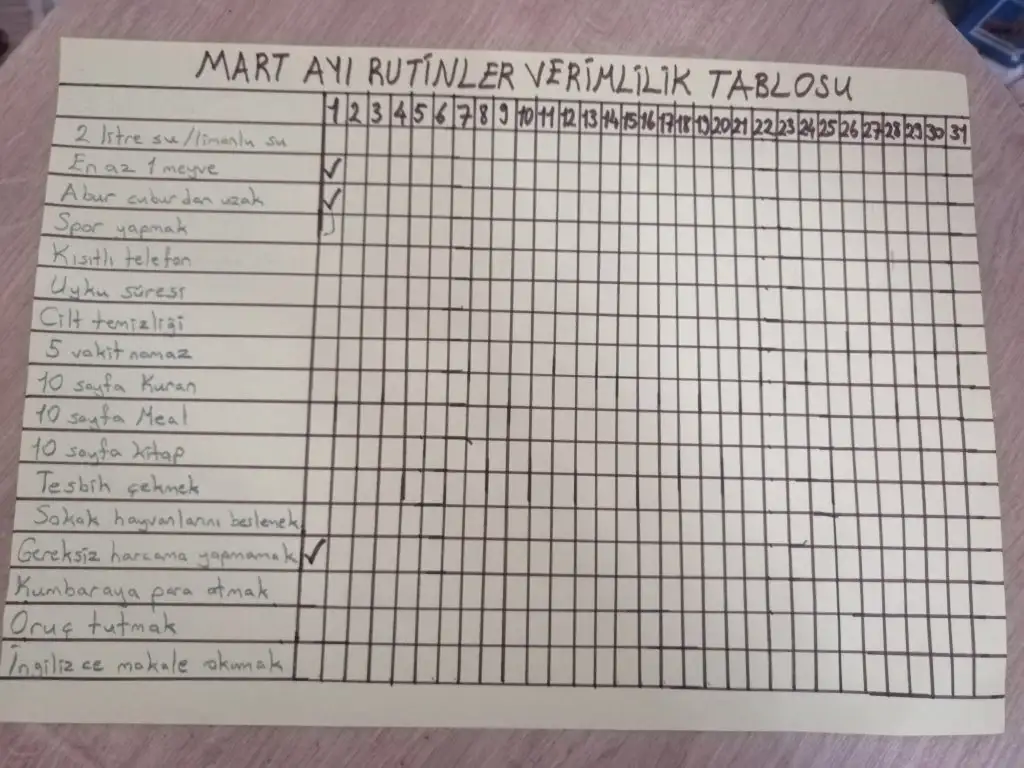 MART AYI RUTİNLER VERİMLİLİK TABLOSU
1 2 3 4 5 6 7 8 9 10 11 12 13 14 15 16 17 18 19 20 21 22 23 24 25 26 27 28 29 30 31
2 litre su/limonlu su
En az 1 meyve ✓
Abur cuburdan uzak ✓
Spor yapmak
Kısıtlı telefon
Uyku süresi
Cilt temizliği
5 vakit namaz
10 sayfa Kuran
10 sayfa Meal
10 sayfa kitap
Tesbih çekmek
Sokak hayvanlarını beslemek
Gereksiz harcama yapmamak ✓
Kumbaraya para atmak
Oruç tutmak
İngilizce makale okumak